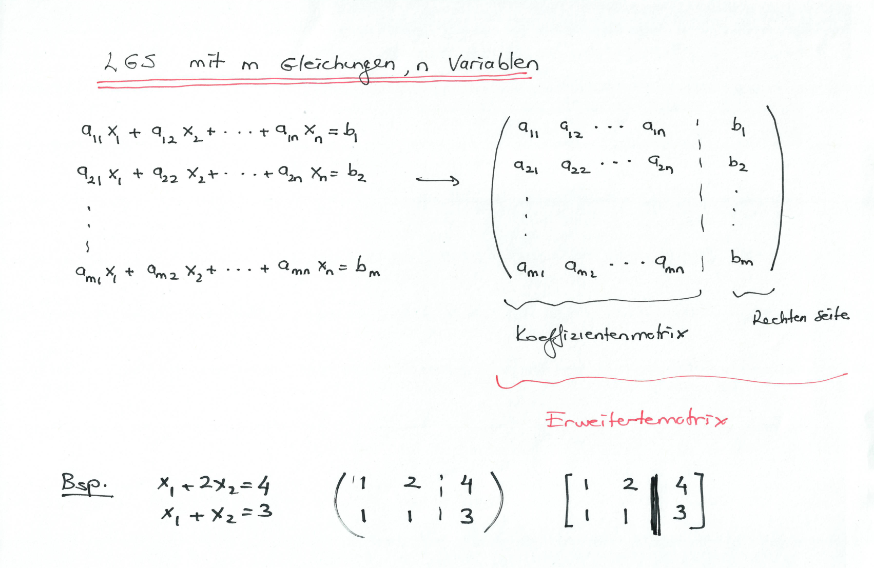 LGS mit m Gleichungen, n Variablen
a₁₁ x₁ + a₁₂ x₂ + · · · + a₁ₙ xₙ = b₁
a₂₁ x₁ + a₂₂ x₂ + · · · + a₂ₙ xₙ = b₂
⋮
aₘ₁ x₁ + aₘ₂ x₂ + · · · + aₘₙ xₙ = bₘ
⟷
( a₁₁ a₁₂ · · · a₁ₙ ¦ b₁
a₂₁ a₂₂ · · · a₂ₙ ¦ b₂
⋮ ¦ ⋮
aₘ₁ aₘ₂ · · · aₘₙ ¦ bₘ )
Koeffizientenmatrix
Rechten Seite
Erweitertematrix
Bsp.
x₁ + 2x₂ = 4
x₁ + x₂ = 3
( 1 2 ¦ 4
1 1 ¦ 3 )
[ 1 2 | 4
1 1 | 3 ]